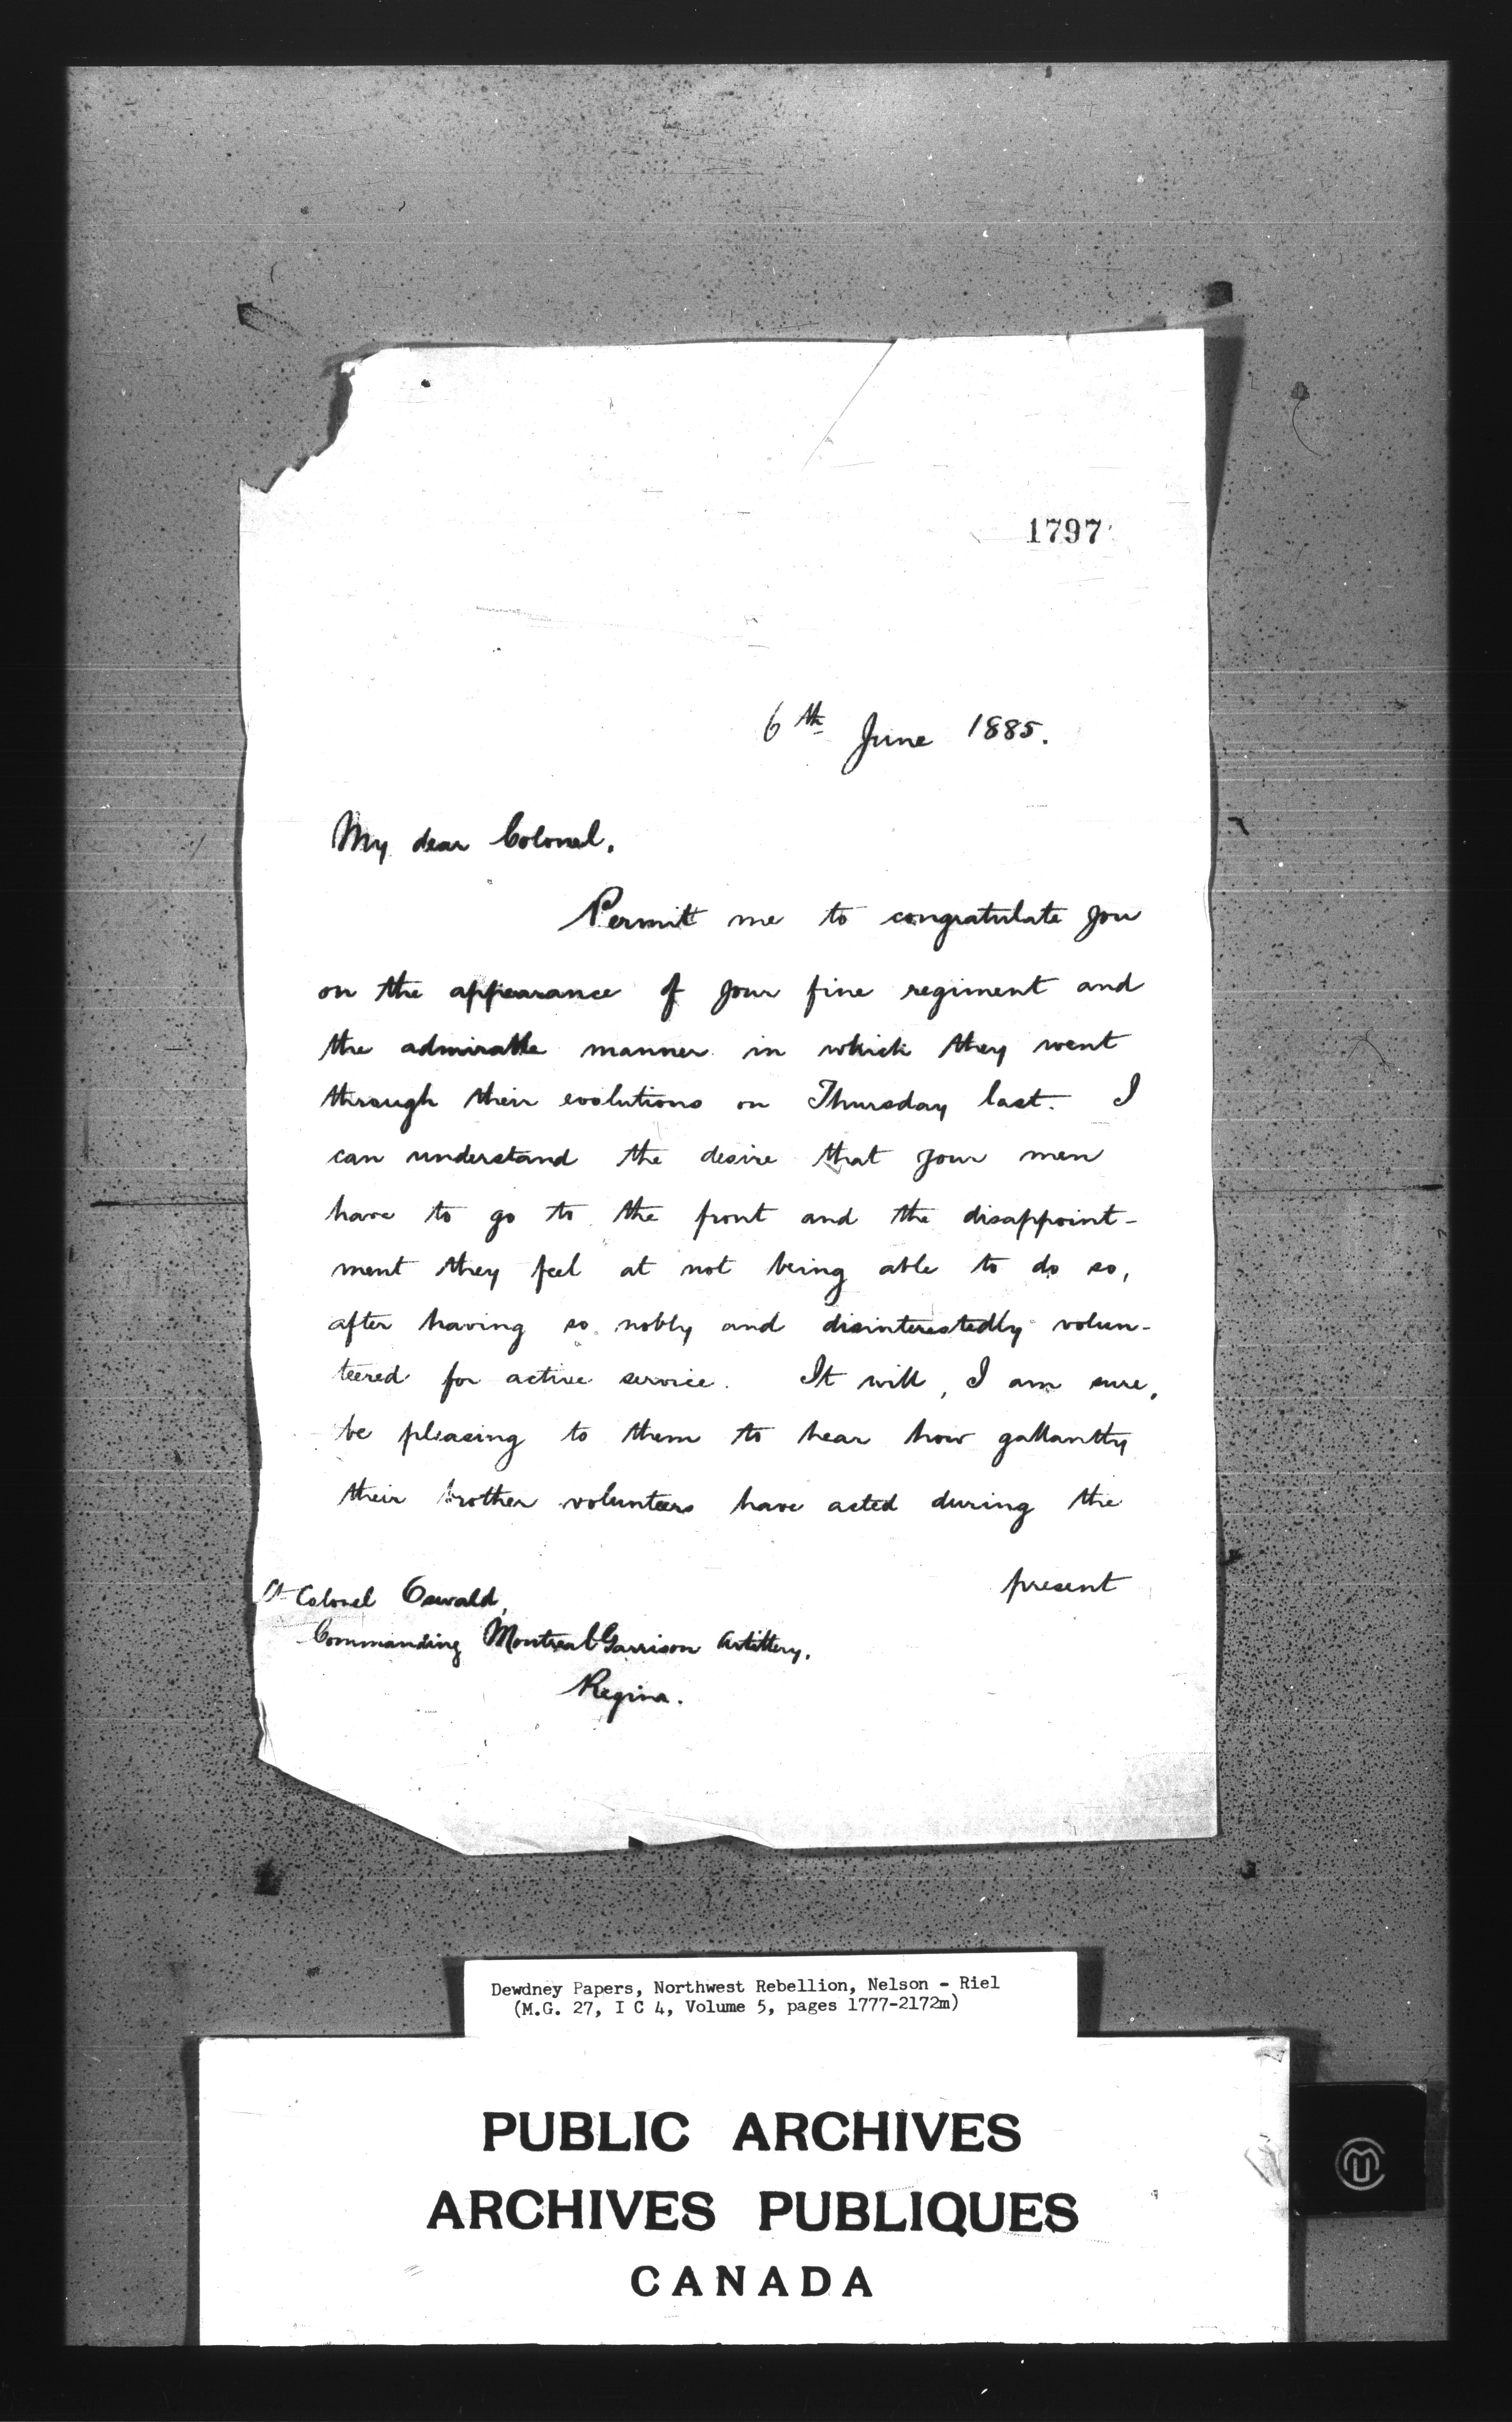 1797
6th June 1885.
My dear Colonel,
Permit me to congratulate you
on the appearance of your fine regiment and
the admirable manner in which they went
through their evolutions on Thursday last. I
can understand the desire that your men
have to go to the front and the disappoint-
ment they feel at not being able to do so,
after having so nobly and disinterestedly volun-
teered for active service. It will, I am sure,
be pleasing to them to hear how gallantly
their brother volunteers have acted during the
present
Lt Colonel Oswald,
Commanding Montreal Garrison Artillery,
Regina.
Dewdney Papers, Northwest Rebellion, Nelson - Riel
(M.G. 27, I C 4, Volume 5, pages 1777-2172m)
PUBLIC ARCHIVES
ARCHIVES PUBLIQUES
CANADA